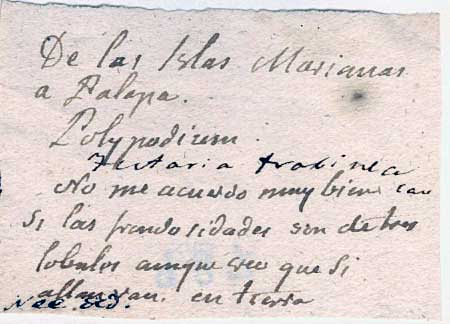 De las Islas Marianas
a Palapa.
Polypodium.
No me acuerdo muy bien
Si las frondosidades son de tres
lobulos aunque creo que Si
en tierra